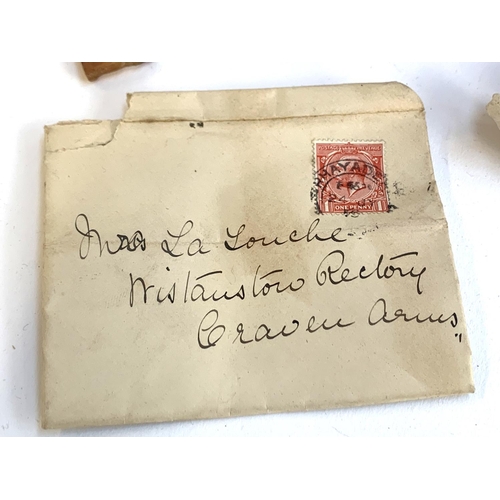 RHAYADER
POSTAGE REVENUE
ONE PENNY
Mrs La Touche
Wistanstow Rectory
Craven Arms